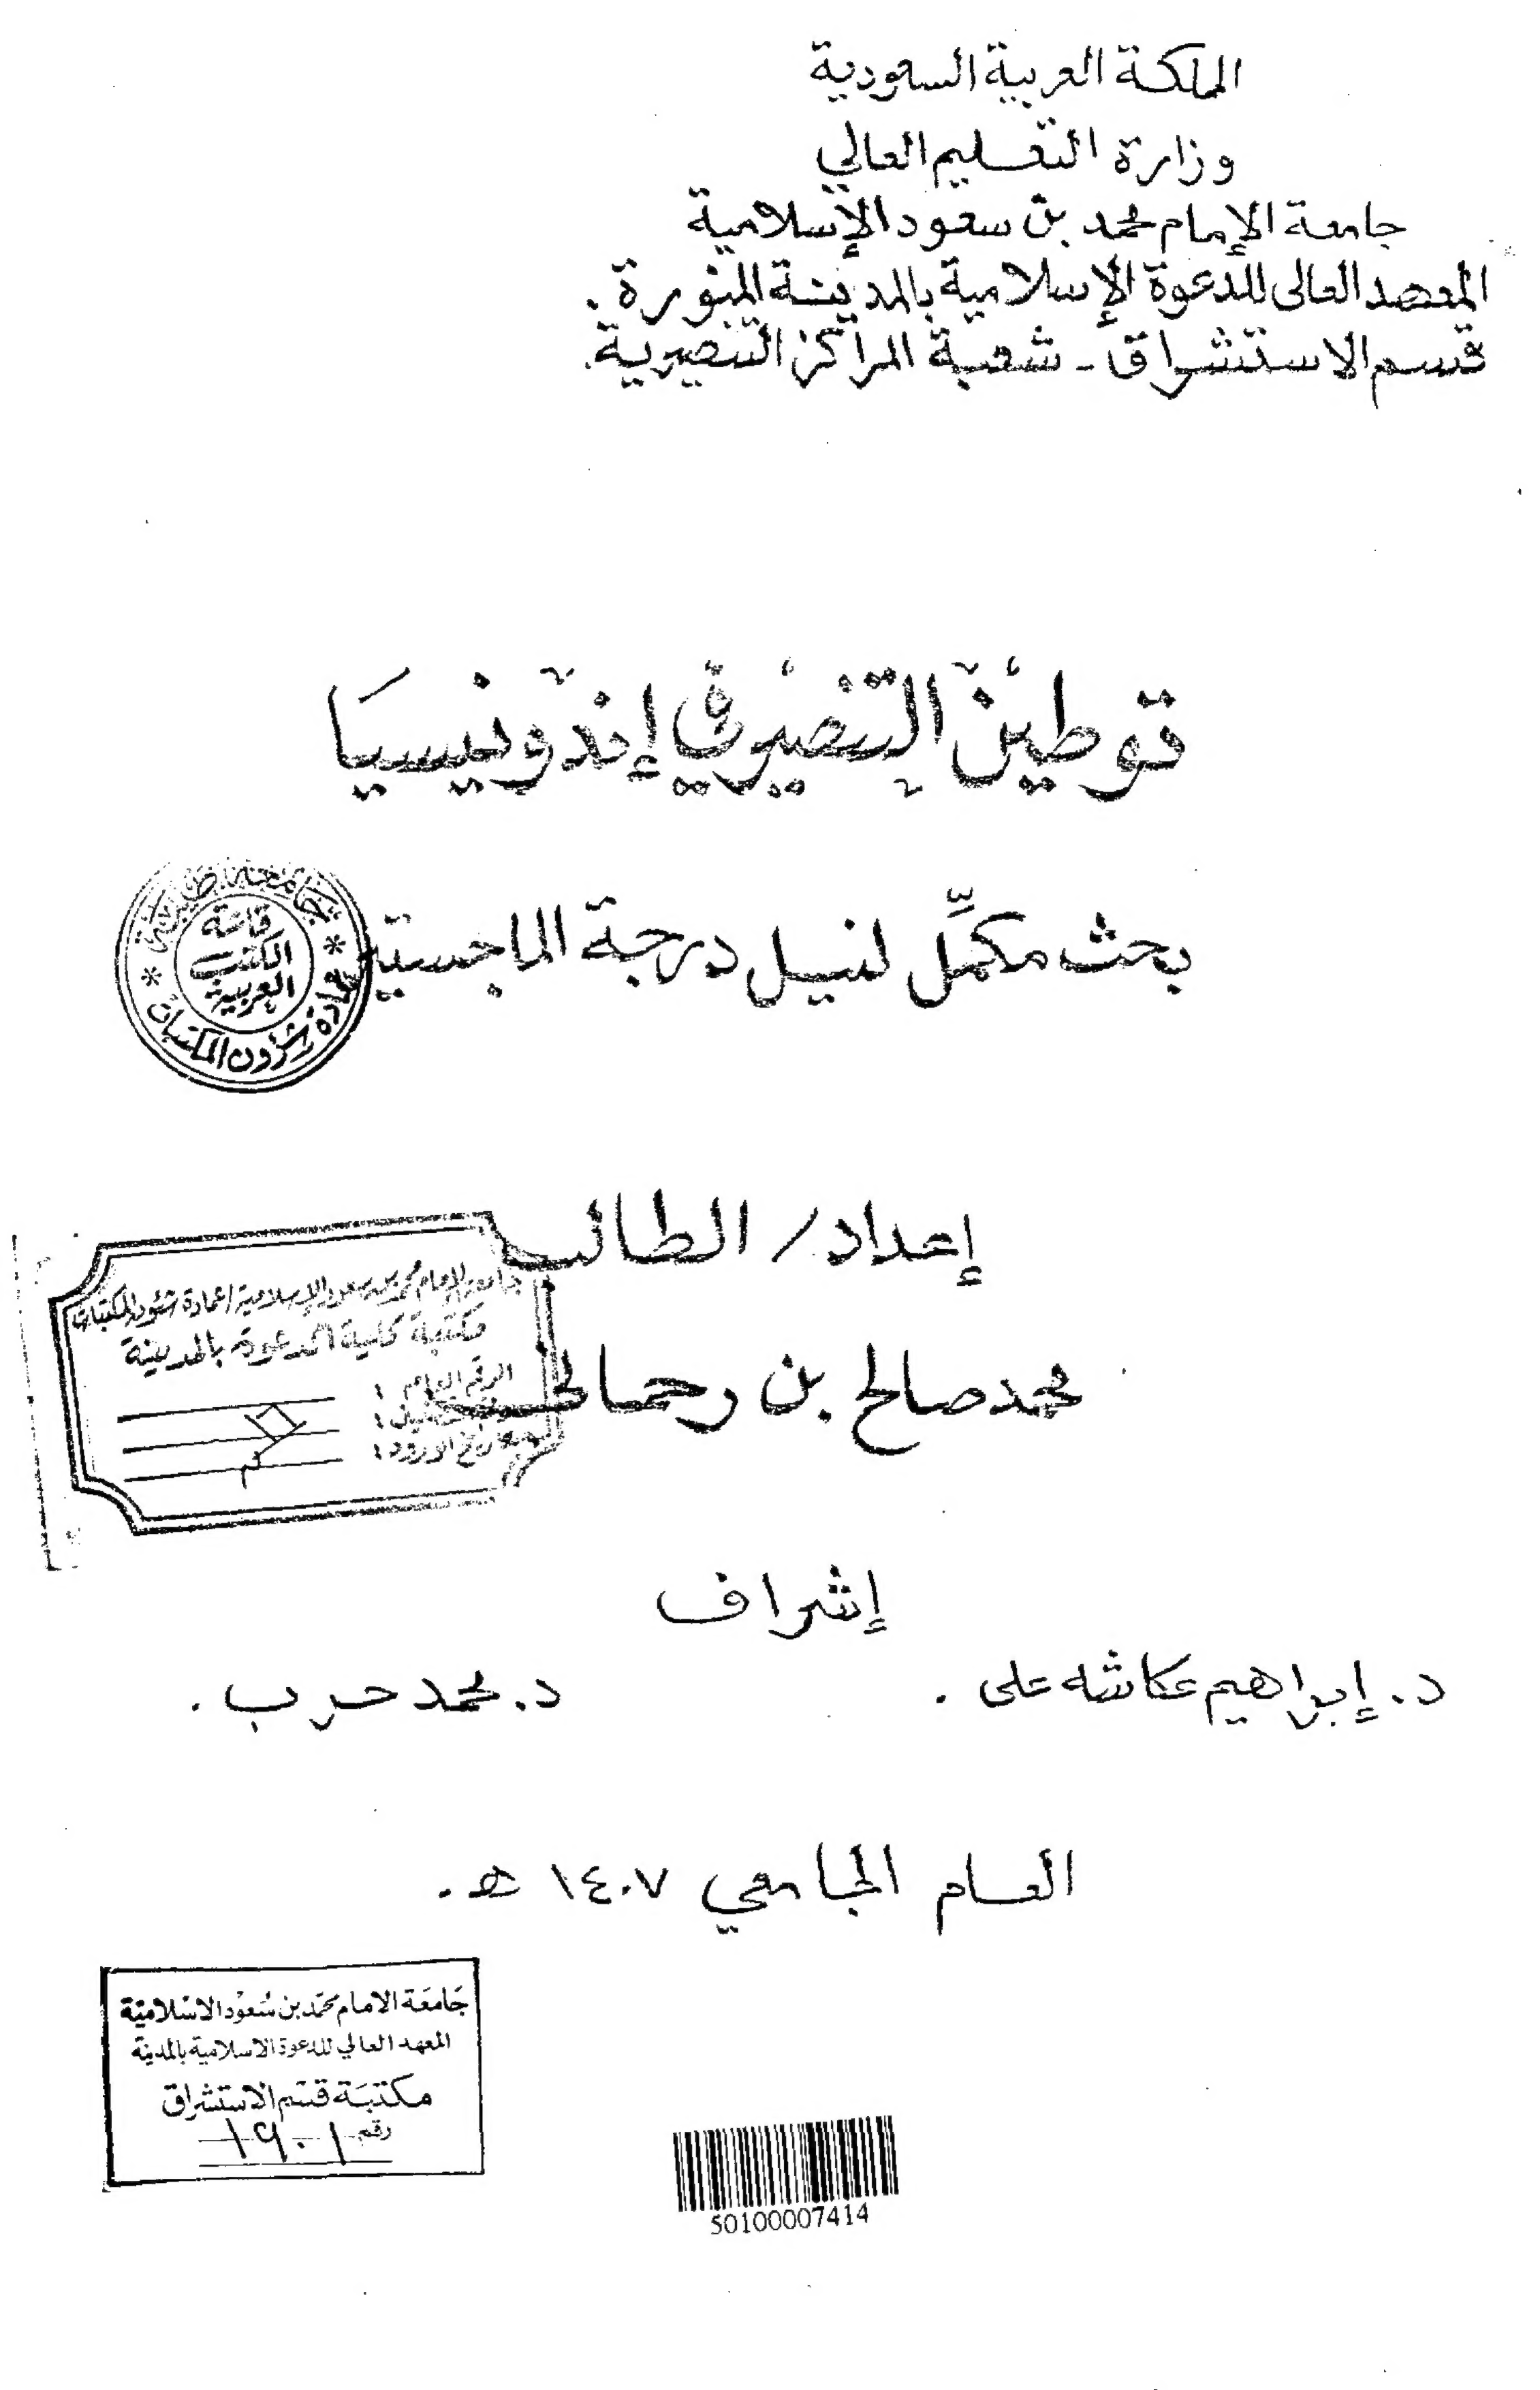 المملكة العربية السعودية
وزارة التعليم العالي
جامعة الإمام محمد بن سعود الإسلامية
المعهد العالى للدعوة الإسلامية بالمدينة المنورة.
قسم الاستشراق - شعبة المراكز التنصيرية.
توطين التنصير في إندونيسيا
بحث مكمِّل لنيل درجة الماجستير
جامعة طيبة
عمادة شؤون المكتبات
قاعة
الكتب
العربية
إعداد / الطالب
محمد صالح بن رحمالي
جامعة الإمام محمد بن سعود الإسلامية / عمادة شئون المكتبات
مكتبة كلية الدعوة بالمدينة
الرقم العام :
تاريخ الورود :
إشراف
د. إبراهيم عكاشه على .
د. محمد حرب .
العام الجامعي ١٤٠٧ هـ.
جَامعَة الامام محمّد بن سُعوْد الاسْلاميّة
المعهد العالي للدعوة الاسلامية بالمدينة
مكتبَة قسْم الاستشراق
رقم ١٩٠١
50100007414